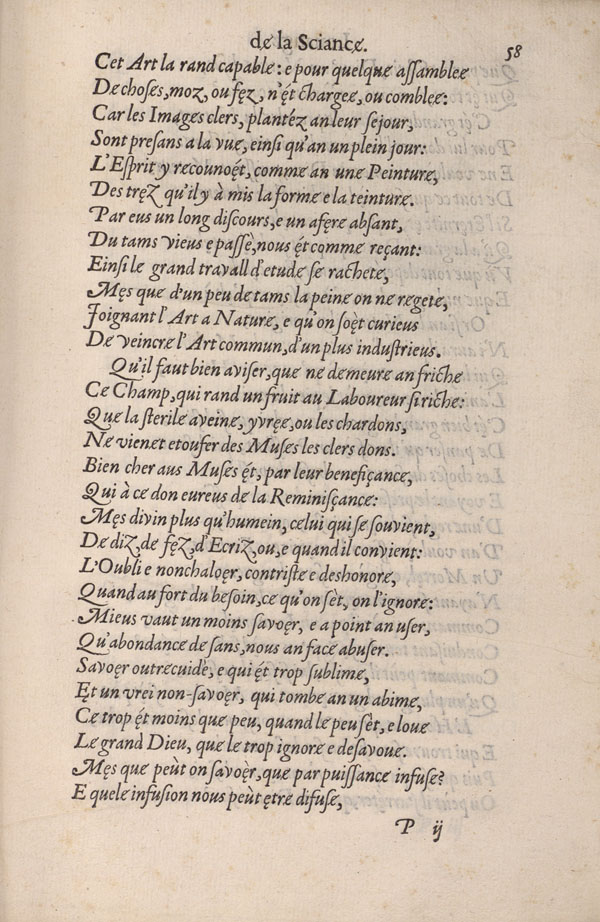 de la Sciancę.
58
Cet Art la rand capable: e pour quelque assamblee
De choses, moz, ou fęz, n'ét chargee, ou comblee:
Car les Images clers, plantéz an leur sejour,
Sont presans a la vue, einsi qu'an un plein jour:
L'Esprit y recounoét, comme an une Peinture,
Des tręz qu'il y à mis la forme e la teinture.
Par eus un long discours, e un afęre absant,
Du tams vieus e passè, nous ét comme reçant:
Einsi le grand travalh d'etude se rachete,
Męs que d'un peu de tams la peine on ne regete,
Joignant l'Art a Nature, e qu'on soèt curieus
De veincre l'Art commun, d'un plus industrieus.
Qu'il faut bien aviser, que ne demeure an friche
Ce Champ, qui rand un fruit au Laboureur si riche:
Que la sterile aveine, yvręe, ou les chardons,
Ne vienet etoufer des Muses les clers dons.
Bien cher aus Muses ét, par leur benefiçance,
Qui à ce don eureus de la Reminisçance:
Męs divin plus qu'humein, celui qui se souvient,
De diz, de fęz, d'Ecriz, ou, e quand il convient:
L'Oubli e nonchaloęr, contriste e deshonore,
Quand au fort du besoin, ce qu'on sèt, on l'ignore:
Mieus vaut un moins savoęr, e a point an user,
Qu'abondance de sans, nous an face abuser.
Savoęr outrecuidè, e qui ét trop sublime,
Et un vrei non-savoęr, qui tombe an un abime,
Ce trop ét moins que peu, quand le peu sèt, e loue
Le grand Dieu, que le trop ignore e desavoue.
Męs que peùt on savoęr, que par puissance infuse?
E quele infusion nous peùt ętre difuse,
P ij